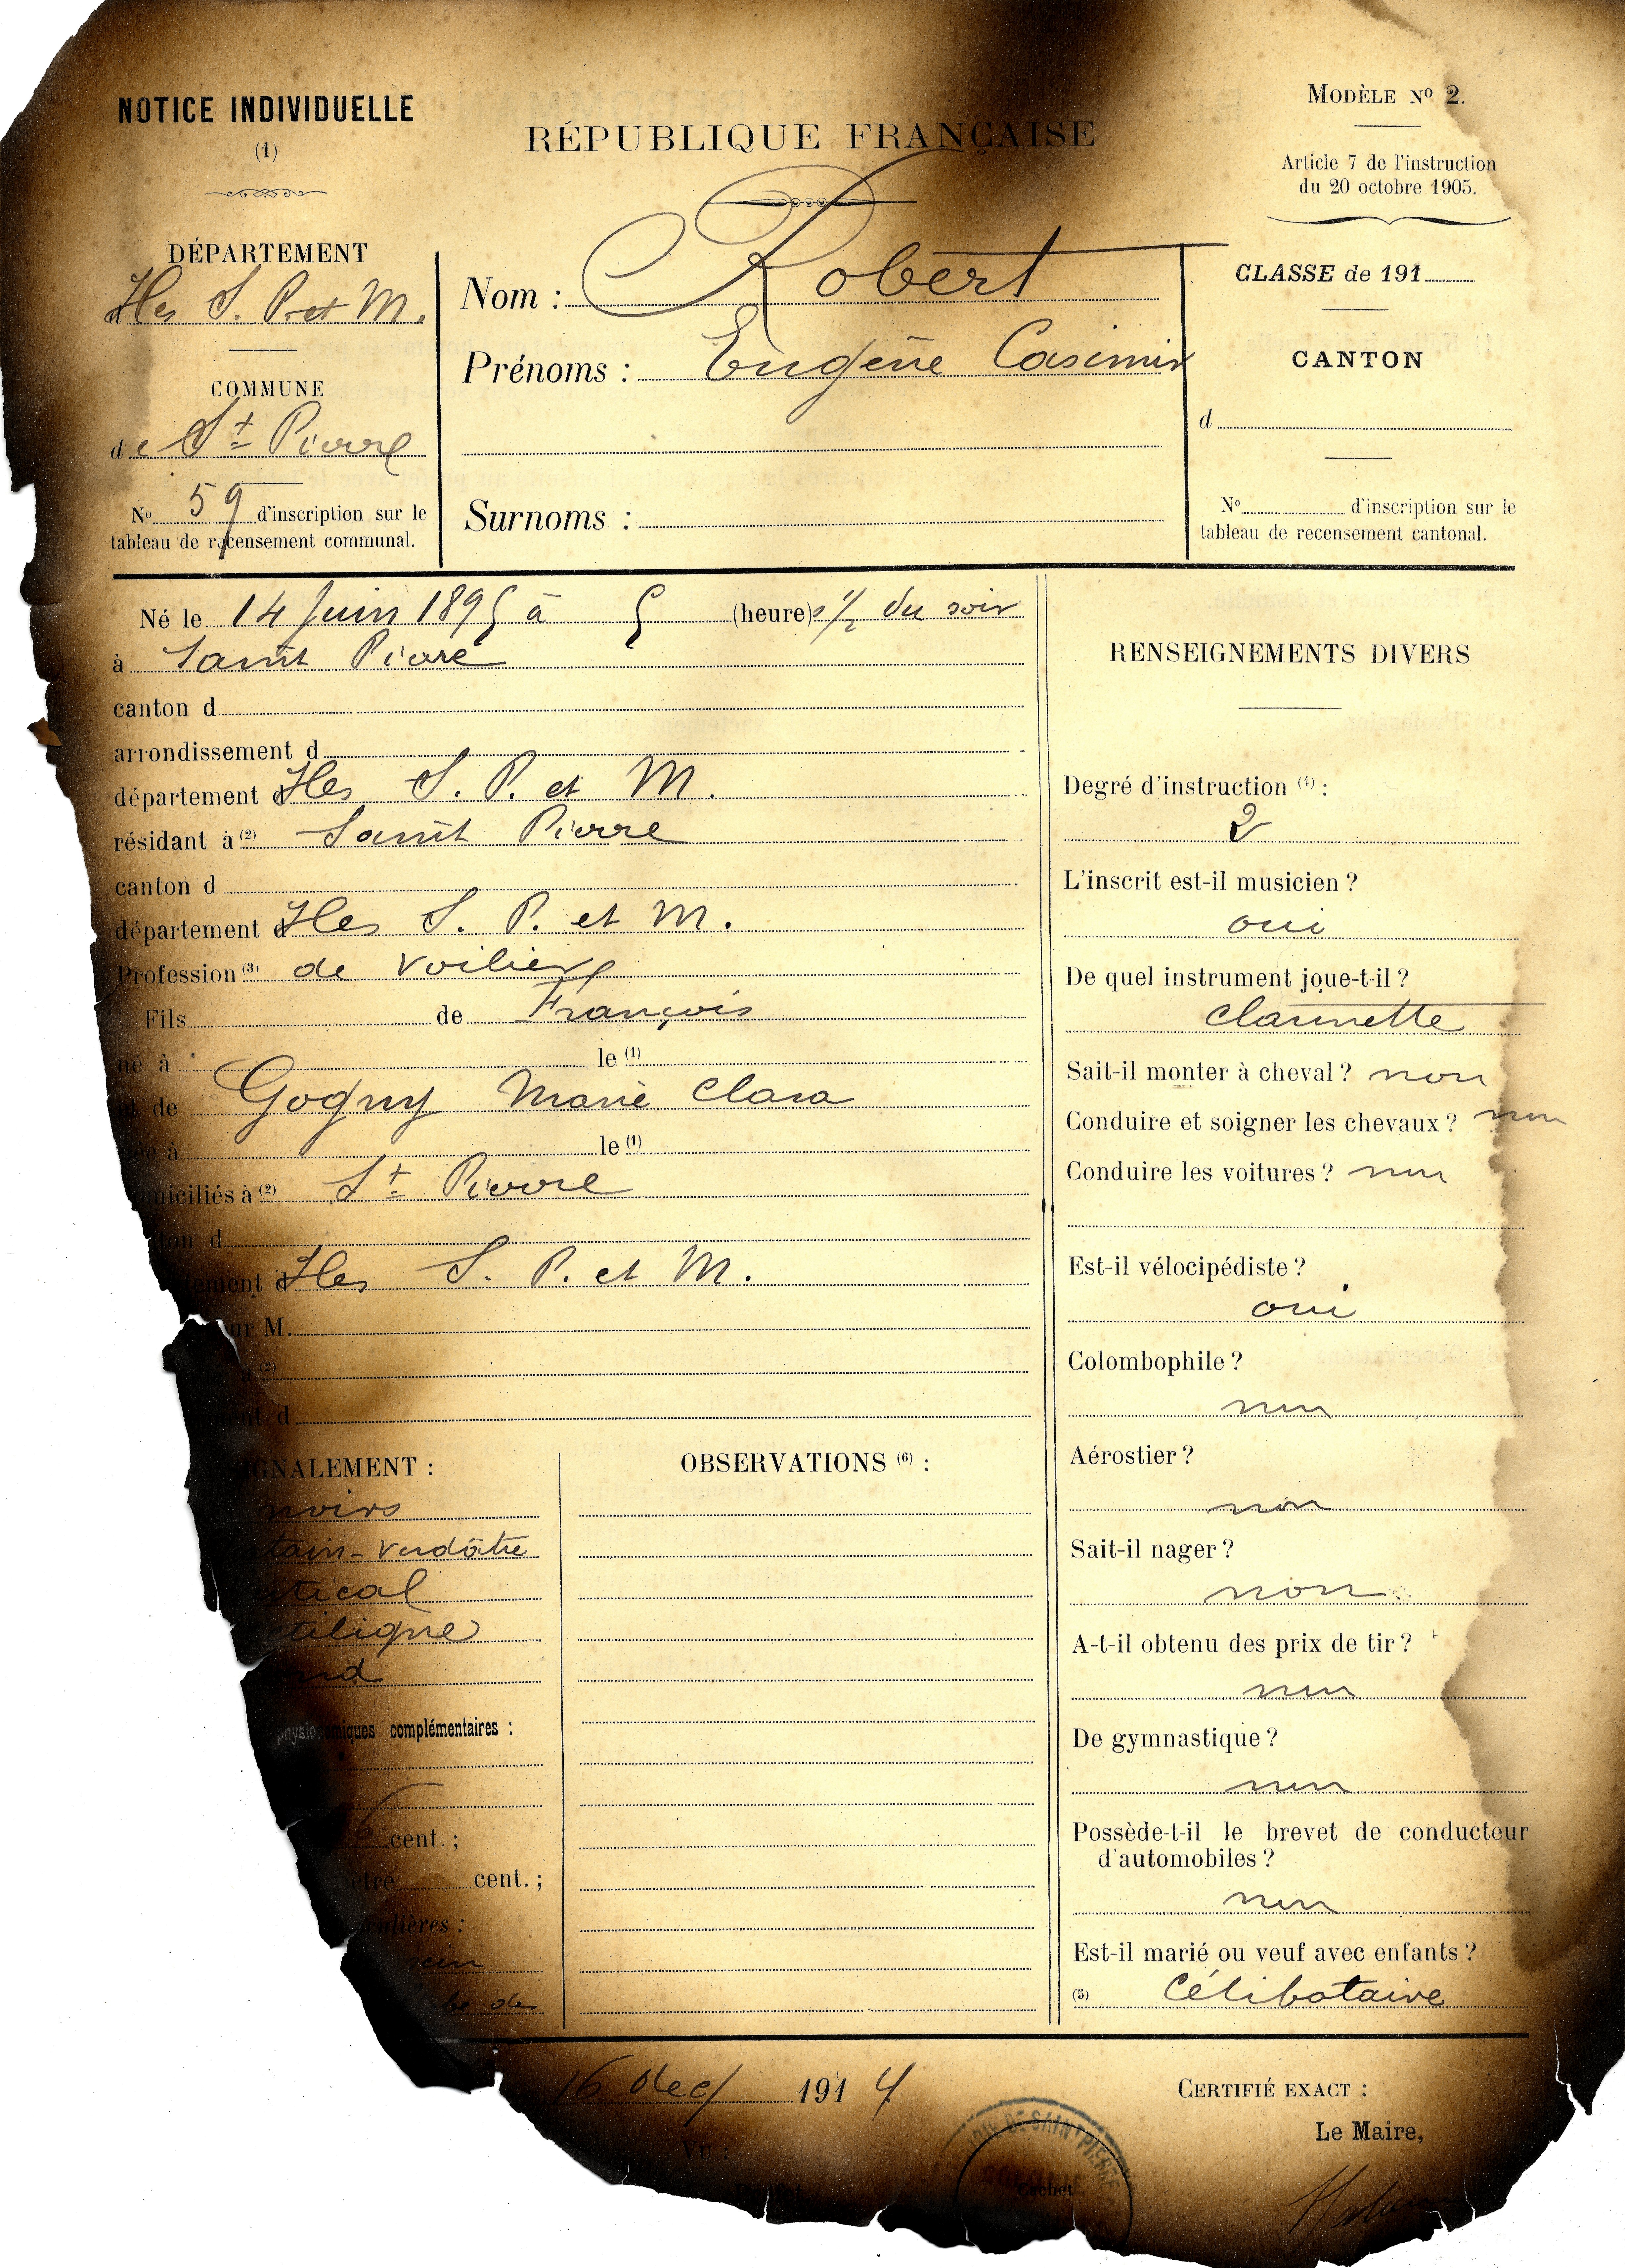 NOTICE INDIVIDUELLE
(1)
RÉPUBLIQUE FRANÇAISE
MODÈLE Nº 2.
Article 7 de l'instruction
du 20 octobre 1905.
DÉPARTEMENT
d Iles S. P. et M.
COMMUNE
de St Pierre
Nº 59 d'inscription sur le
tableau de recensement communal.
Nom : Robert
Prénoms : Eugène Casimir
Surnoms :
CLASSE de 191
CANTON
d
Nº d'inscription sur le
tableau de recensement cantonal.
Né le 14 Juin 1895 à 5 (heure)s 1/2 du soir
à Saint Pierre
canton d
arrondissement d
département d Iles S. P. et M.
résidant à (2) Saint Pierre
canton d
département d Iles S. P. et M.
Profession (3) de voilier
Fils de François
né à le (1)
et de Gogny Marie Clara
née à le (1)
domiciliés à (2) St Pierre
canton d
département d Iles S. P. et M.
ur M.
à (2)
ment d
SIGNALEMENT :
noirs
tain-verdâtre
vertical
ectiligne
ond
physionomiques complémentaires :
6 cent. ;
mètre cent. ;
culières :
sein
be des
OBSERVATIONS (6) :
RENSEIGNEMENTS DIVERS
Degré d'instruction (4) :
2
L'inscrit est-il musicien ?
oui
De quel instrument joue-t-il ?
clarinette
Sait-il monter à cheval ? non
Conduire et soigner les chevaux ? non
Conduire les voitures ? non
Est-il vélocipédiste ?
oui
Colombophile ?
non
Aérostier ?
non
Sait-il nager ?
non
A-t-il obtenu des prix de tir ?
non
De gymnastique ?
non
Possède-t-il le brevet de conducteur
d'automobiles ?
non
Est-il marié ou veuf avec enfants ?
(5) Célibataire
16 dec 1914
VU :
CERTIFIÉ EXACT :
Le Maire,
MAIRIE DE SAINT PIERRE
Cachet